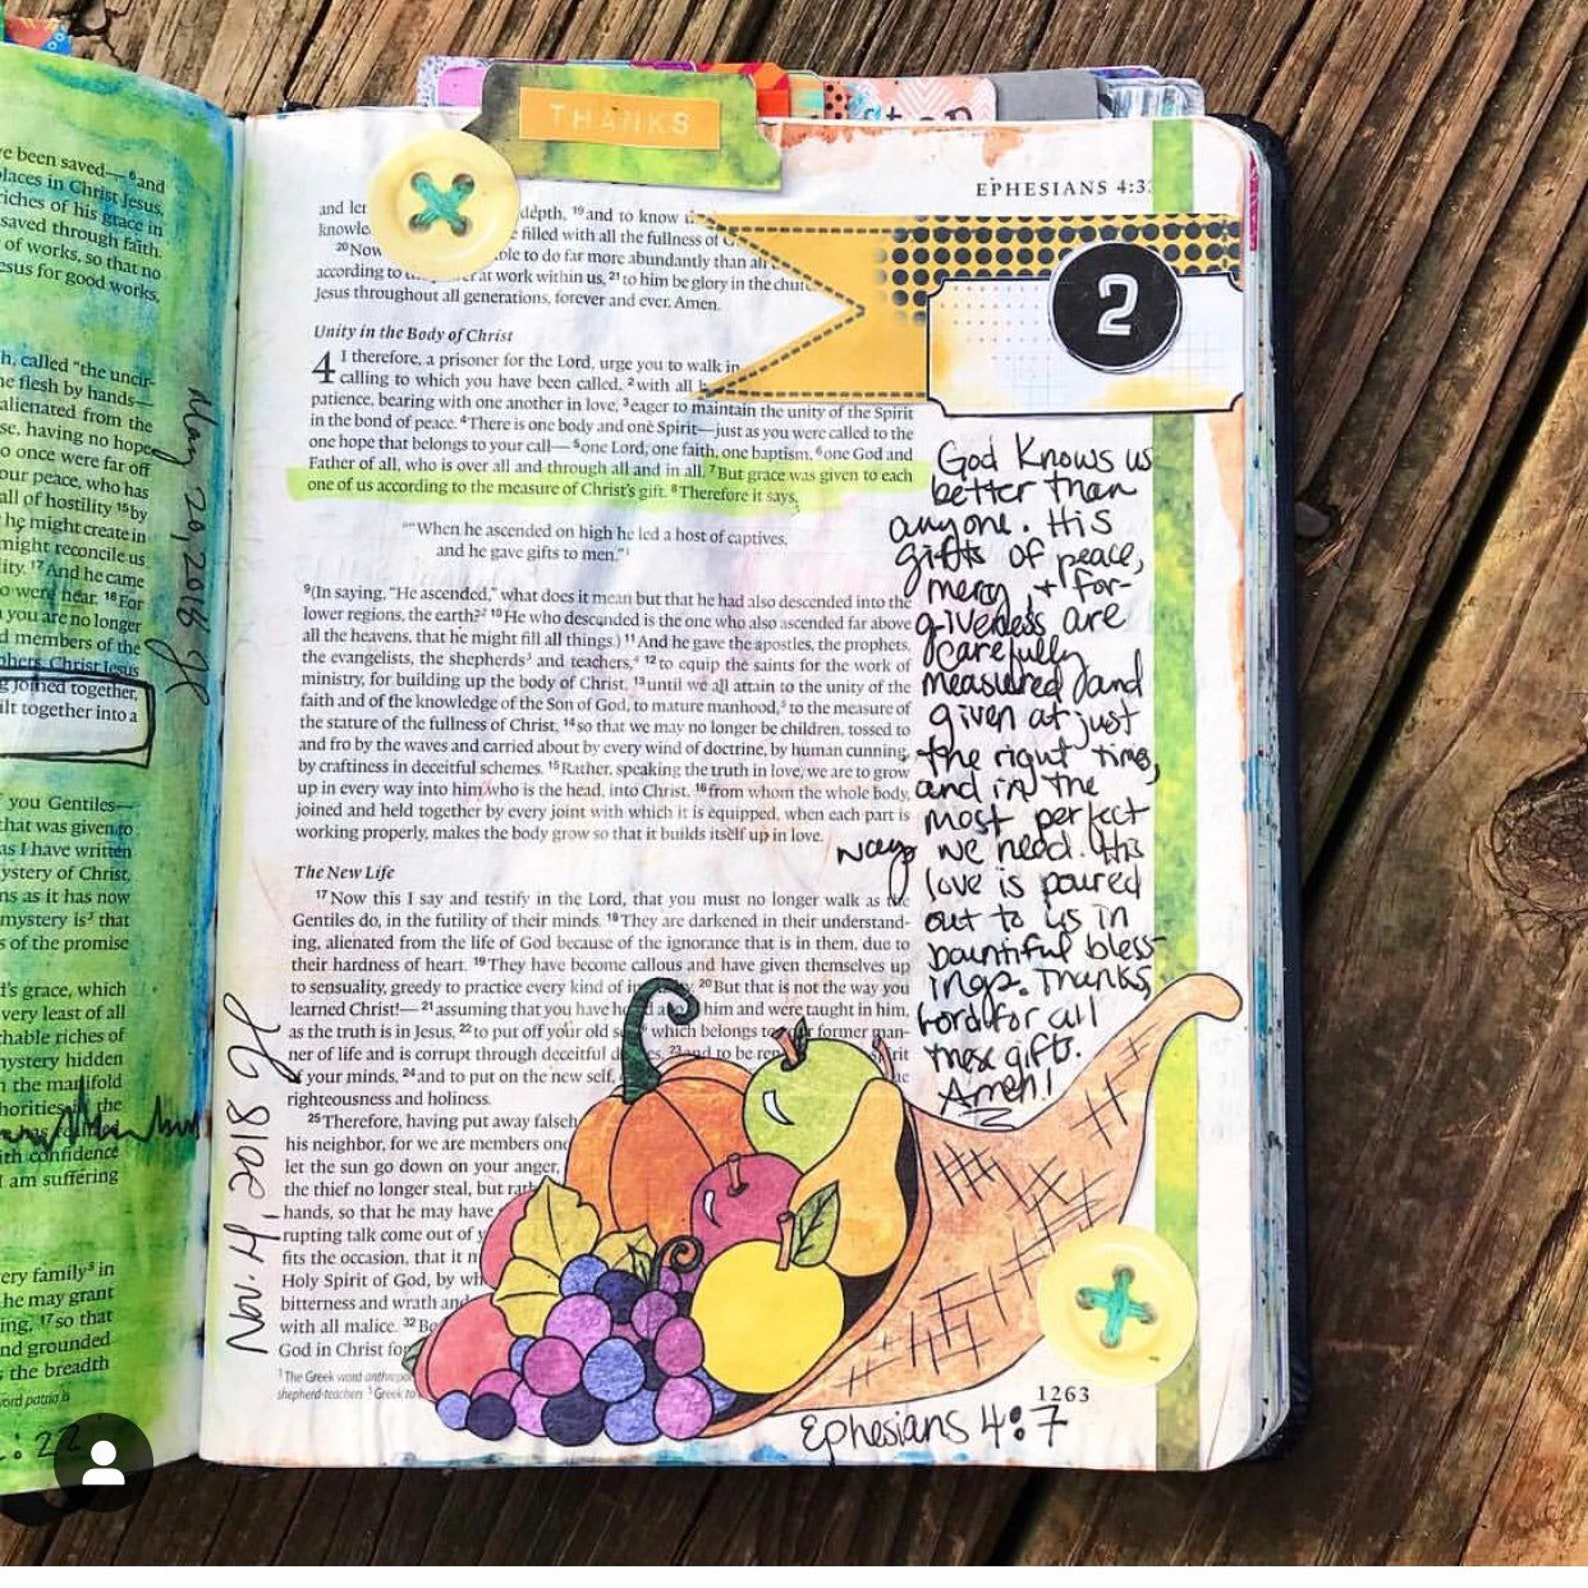 e been saved—⁶and
laces in Christ Jesus,
riches of his grace in
saved through faith.
of works, so that no
esus for good works,
h, called "the uncir-
he flesh by hands—
alienated from the
se, having no hope
o once were far off
our peace, who has
all of hostility ¹⁵by
he might create in
might reconcile us
ity. ¹⁷And he came
o were near. ¹⁸For
you are no longer
d members of the
phets, Christ Jesus
g joined together,
ilt together into a
you Gentiles—
that was given to
as I have written
ystery of Christ,
ns as it has now
mystery is³ that
s of the promise
d's grace, which
very least of all
hable riches of
mystery hidden
the manifold
horities in the
ith confidence
I am suffering
ery family⁵ in
he may grant
ing, ¹⁷so that
nd grounded
the breadth
ord patria is
: 22
May 20, 2018
THANKS
EPHESIANS 4:3
2
and le
depth, ¹⁹and to know
knowle
filled with all the fullness of
²⁰Now
ble to do far more abundantly than all
according to
er at work within us, ²¹to him be glory in the chur
Jesus throughout all generations, forever and ever. Amen.
Unity in the Body of Christ
4 I therefore, a prisoner for the Lord, urge you to walk in
calling to which you have been called, ²with all
patience, bearing with one another in love, ³eager to maintain the unity of the Spirit
in the bond of peace. ⁴There is one body and one Spirit—just as you were called to the
one hope that belongs to your call—⁵one Lord, one faith, one baptism, ⁶one God and
Father of all, who is over all and through all and in all. ⁷But grace was given to each
one of us according to the measure of Christ's gift. ⁸Therefore it says,
"When he ascended on high he led a host of captives,
and he gave gifts to men."¹
⁹(In saying, "He ascended," what does it mean but that he had also descended into the
lower regions, the earth?² ¹⁰He who descended is the one who also ascended far above
all the heavens, that he might fill all things.) ¹¹And he gave the apostles, the prophets,
the evangelists, the shepherds³ and teachers,⁴ ¹²to equip the saints for the work of
ministry, for building up the body of Christ, ¹³until we all attain to the unity of the
faith and of the knowledge of the Son of God, to mature manhood,⁵ to the measure of
the stature of the fullness of Christ, ¹⁴so that we may no longer be children, tossed to
and fro by the waves and carried about by every wind of doctrine, by human cunning,
by craftiness in deceitful schemes. ¹⁵Rather, speaking the truth in love, we are to grow
up in every way into him who is the head, into Christ, ¹⁶from whom the whole body,
joined and held together by every joint with which it is equipped, when each part is
working properly, makes the body grow so that it builds itself up in love.
The New Life
¹⁷Now this I say and testify in the Lord, that you must no longer walk as the
Gentiles do, in the futility of their minds. ¹⁸They are darkened in their understand-
ing, alienated from the life of God because of the ignorance that is in them, due to
their hardness of heart. ¹⁹They have become callous and have given themselves up
to sensuality, greedy to practice every kind of i ²⁰But that is not the way you
learned Christ!—²¹assuming that you have h him and were taught in him,
as the truth is in Jesus, ²²to put off your old s which belongs to former man-
ner of life and is corrupt through deceitful d es, ²³and to be ren irit
of your minds, ²⁴and to put on the new self,
righteousness and holiness.
²⁵Therefore, having put away falseh
his neighbor, for we are members one
let the sun go down on your anger,
the thief no longer steal, but rath
hands, so that he may have
rupting talk come out of y
fits the occasion, that it
Holy Spirit of God, by wh
bitterness and wrath and
with all malice. ³²Be
God in Christ for
¹The Greek word anthropo
shepherd-teachers ⁵Greek to
Nov. 4, 2018
God knows us
better than
anyone. His
gifts of peace,
mercy, + for-
giveness are
carefully
measured and
given at just
the right time,
and in the
most perfect
way we need. His
love is poured
out to us in
bountiful bless-
ings. Thanks,
Lord for all
these gifts.
Amen!
1263
Ephesians 4:7